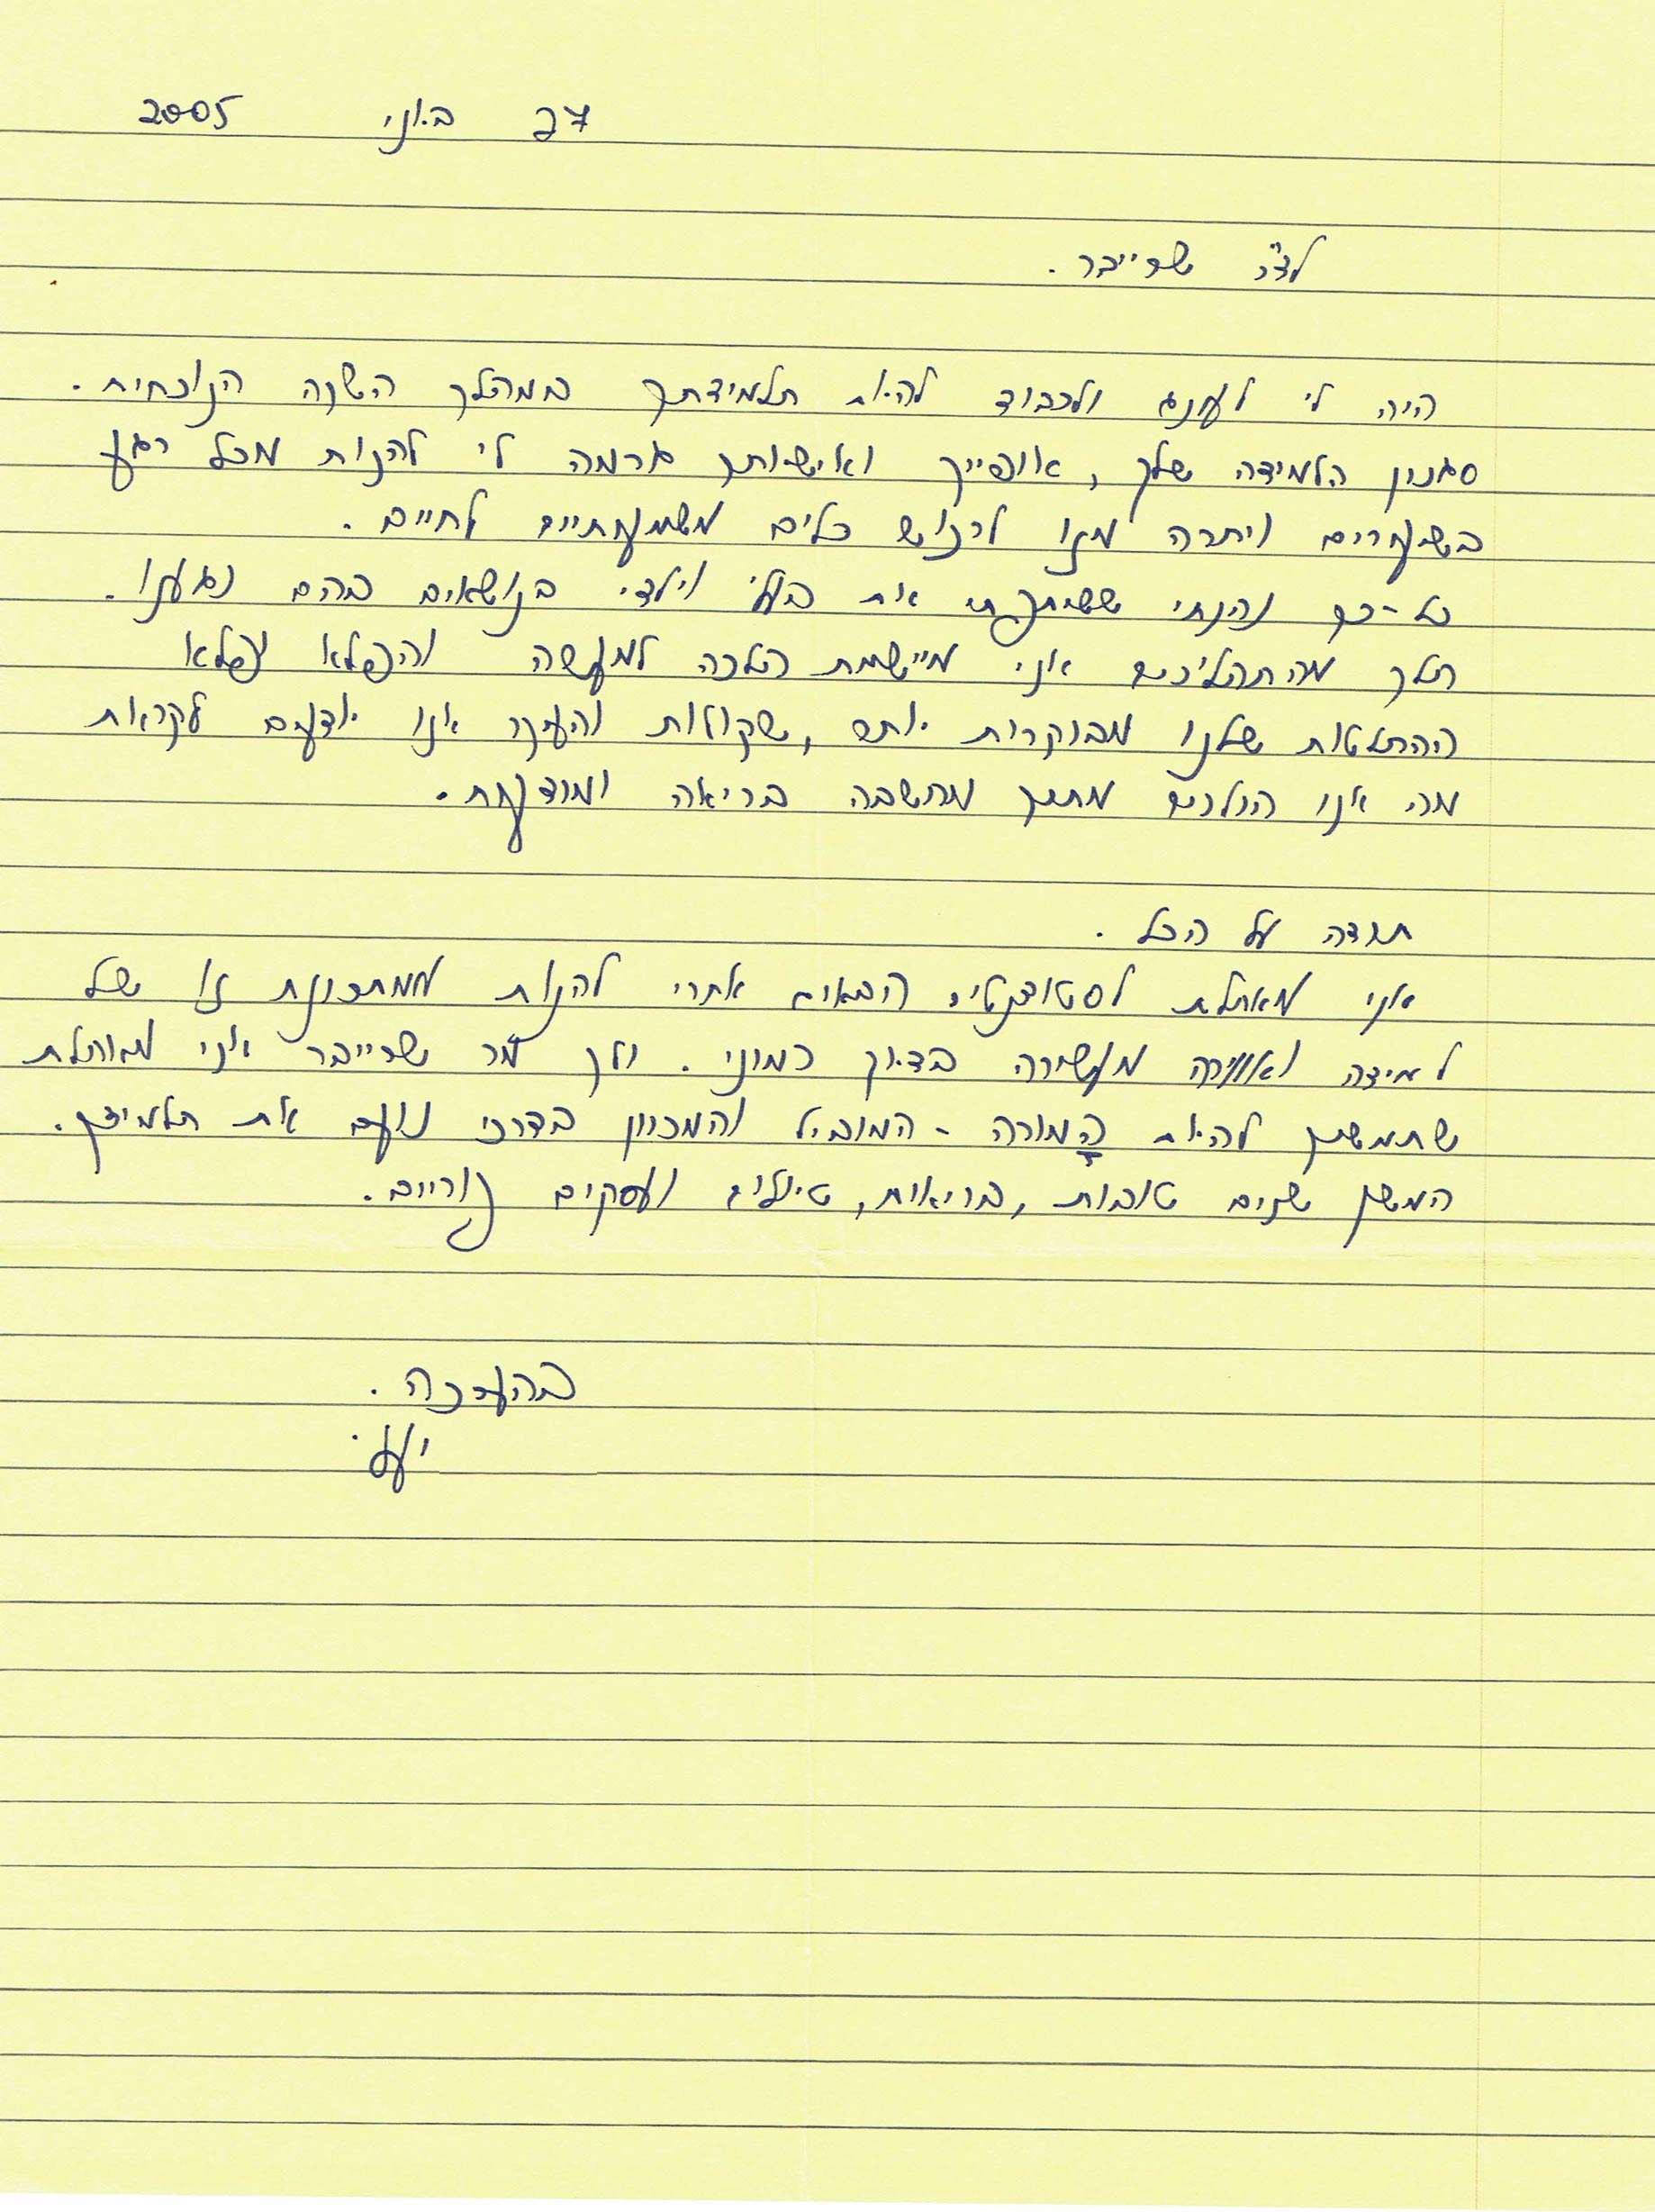 27 ביוני 2005
לד"ר שרייבר.
היה לי לעונג ולכבוד להיות תלמידתך במהלך השנה הנוכחית.
סגנון הלמידה שלך, אופייך ואישיותך גרמה לי להנות מכל רגע
בשיעורים ויתרה מזו לרכוש כלים משמעותיים לחיים.
כל-כך נהנתי ששיתפתי את בעלי וילדי בנושאים בהם נגענו.
חלק מהתהליכים אני מיישמת הלכה למעשה והפלא ופלא
ההחלטות שלנו מבוקרות יותר, שקולות והעיקר אנו יודעים לקראת
מה אנו הולכים מתוך מחשבה בריאה ומודעת.
תודה על הכל.
אני מאחלת לסטודנטים הבאים אחרי להנות ממתכונת זו של
למידה ואווירה מעשירה בדיוק כמוני. ולך מר שרייבר אני מאחלת
שתמשיך להיות הָמורה - המוביל והמכוון בדרכי נועם את תלמידיך.
המשך שנים טובות, בריאות, טיולים ועסקים פוריים.
בהערכה.
יעל.